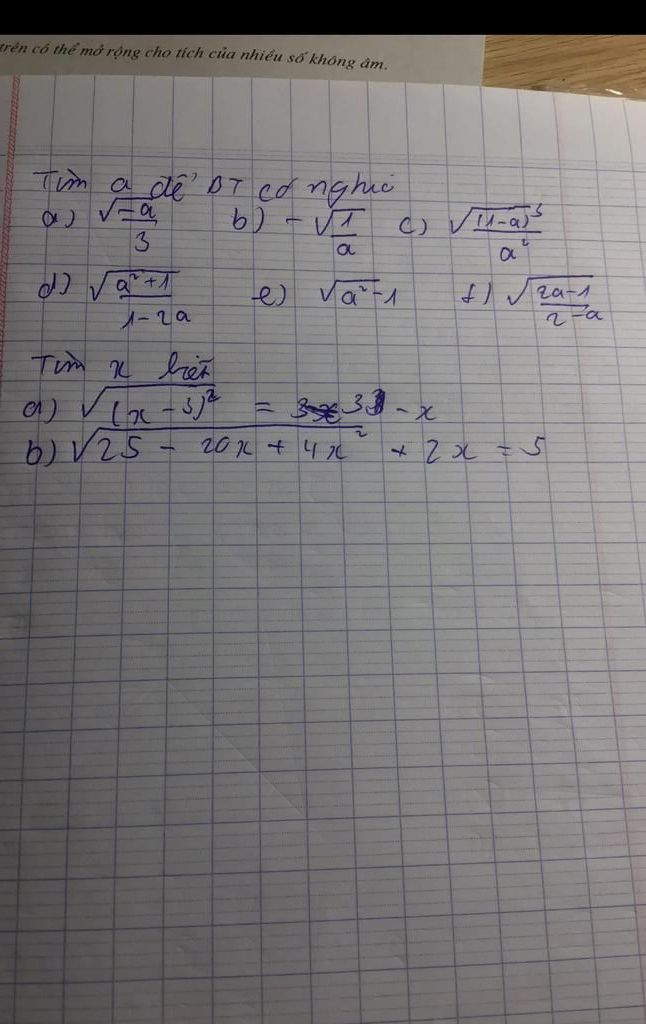 trên có thể mở rộng cho tích của nhiều số không âm.
Tìm a để BT có nghĩa
a) √(-a/3) b) -√(1/a) c) √((1-a)³/a²)
d) √((a²+1)/(1-2a)) e) √(a²-1) f) √((2a-1)/(2-a))
Tìm x biết
a) √((x-3)²) = 3 - x
b) √(25 - 20x + 4x²) + 2x = 5